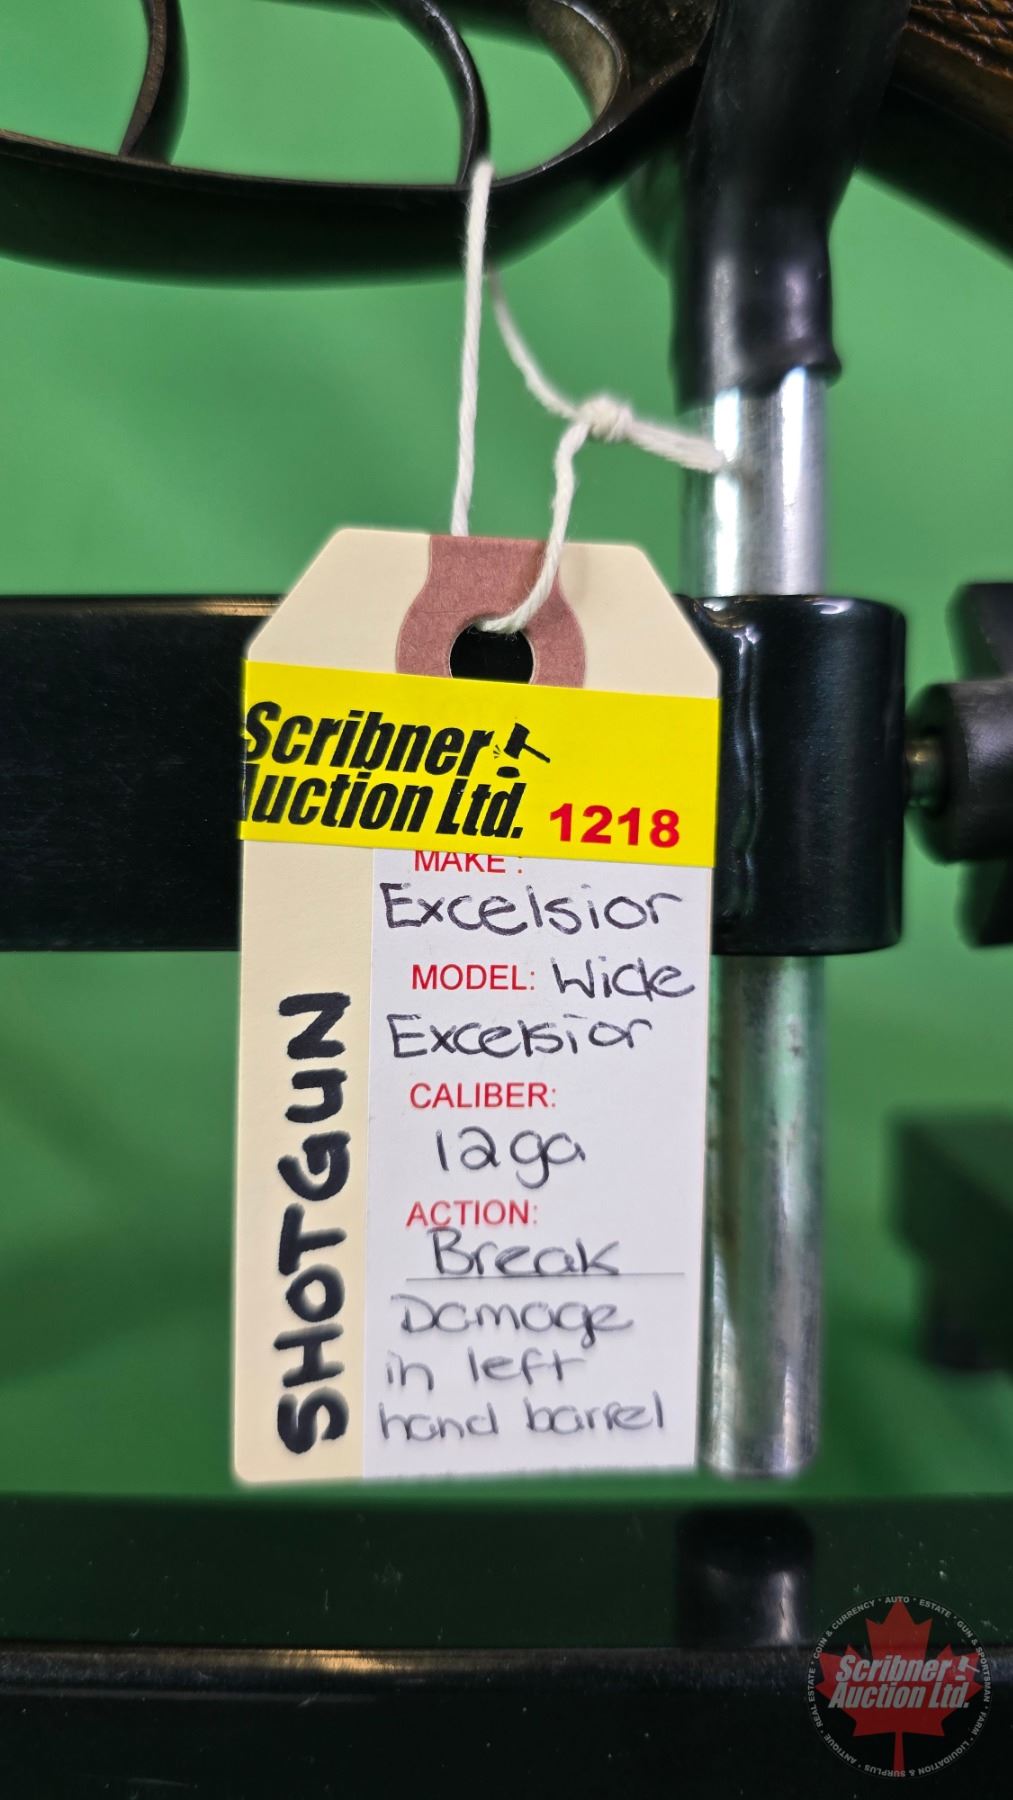 Scribner
Auction Ltd.
1218
MAKE:
Excelsior
MODEL: Wide
Excelsior
CALIBER:
12ga
ACTION:
Break
Damage
in left
hand barrel
SHOTGUN
COIN & CURRENCY • AUTO • ESTATE • GUN & SPORTSMAN • FARM • LIQUIDATION & SURPLUS • ANTIQUE • REAL ESTATE •
Scribner
Auction Ltd.